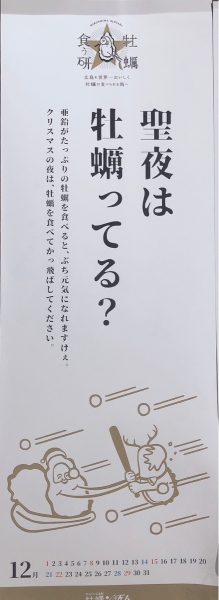 牡蠣
食う研
広島を世界一おいしく
牡蠣が食べられる街へ
聖夜は
牡蠣ってる？
亜鉛がたっぷりの牡蠣を食べると、ぶち元気になれますけぇ。
クリスマスの夜は、牡蠣を食べてかっ飛ばしてください。
12月
1 2 3 4 5 6 7 8 9 10 11 12 13 14 15 16 17 18 19 20
21 22 23 24 25 26 27 28 29 30 31